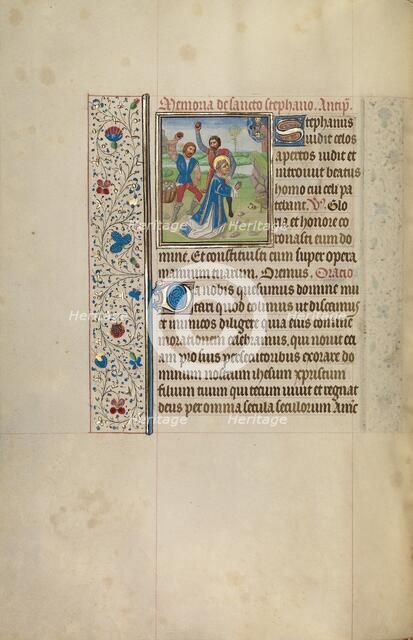 Memoria de sancto stephano. Antiph.
Stephanus
vidit celos
apertos vidit et
introiuit beatus
homo cui celi pa
tebant. V. Glo
ria et honore co
ronasti eum do
mine. Et constituisti eum super opera
manuum tuarum. Oremus. Oratio
Da nobis quesumus domine imi
tari quod colimus ut discamus
et inimicos diligere quia eius com
morationem celebramus, qui nouit eci
am pro suis persecutoribus exorare do
minum nostrum ihesum xpistum
filium tuum qui tecum viuit et regnat
deus per omnia secula seculorum Amen
Heritage
Heritage
Heritage
Heritage
Heritage